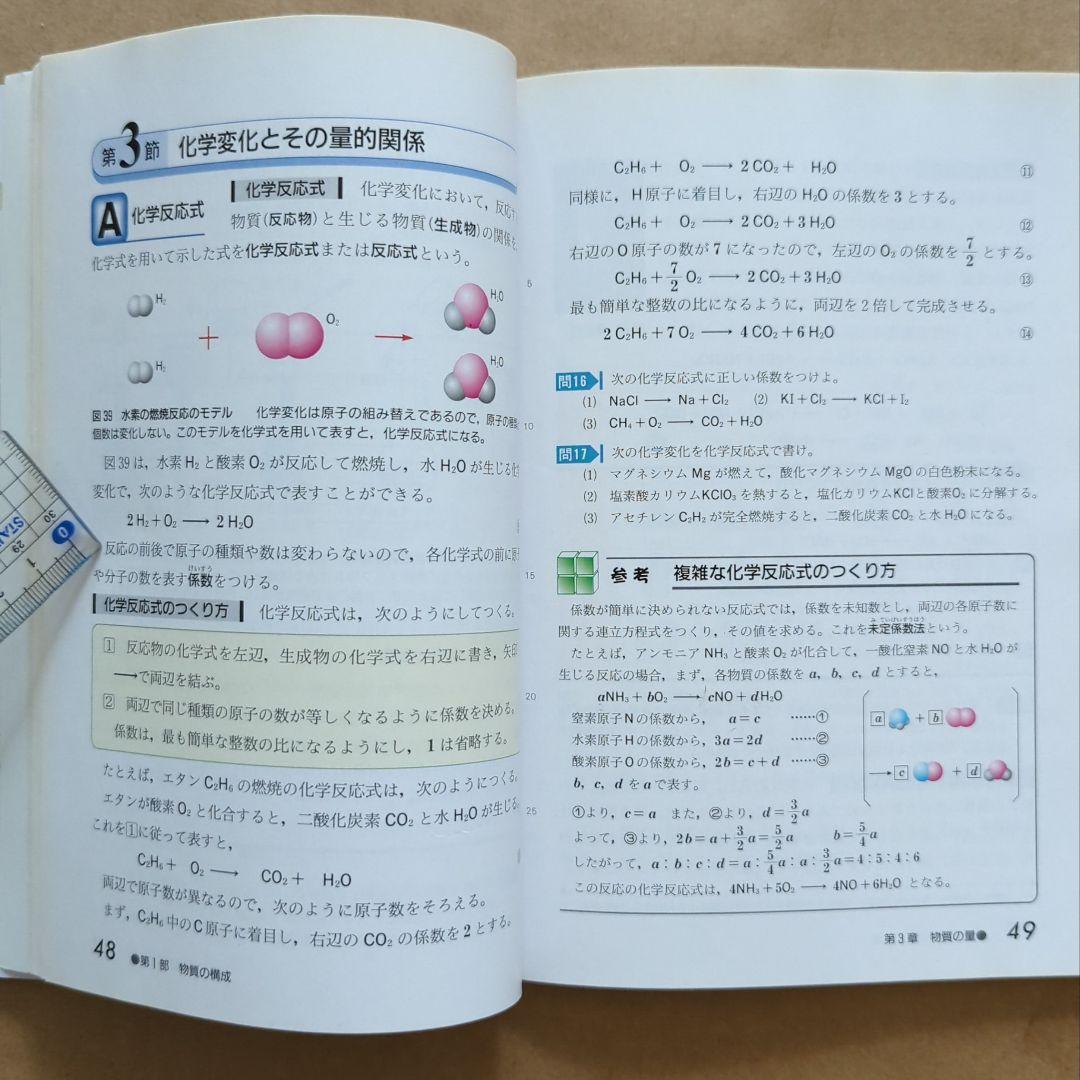 第3節 化学変化とその量的関係
A 化学反応式
化学反応式 化学変化において，反応す
物質(反応物)と生じる物質(生成物)の関係を
化学式を用いて示した式を化学反応式または反応式という。
5
H₂
H₂
+
O₂
H₂O
H₂O
図39 水素の燃焼反応のモデル 化学変化は原子の組み替えであるので，原子の種類
10
個数は変化しない。このモデルを化学式を用いて表すと，化学反応式になる。
図39は，水素H₂と酸素O₂が反応して燃焼し，水H₂Oが生じる化
変化で，次のような化学反応式で表すことができる。
2H₂+O₂ ⟶ 2H₂O
反応の前後で原子の種類や数は変わらないので，各化学式の前に原
や分子の数を表す係数をつける。
けいすう
15
化学反応式のつくり方 化学反応式は，次のようにしてつくる。
1 反応物の化学式を左辺，生成物の化学式を右辺に書き，矢印
⟶で両辺を結ぶ。
20
2 両辺で同じ種類の原子の数が等しくなるように係数を決める。
係数は，最も簡単な整数の比になるようにし，1は省略する。
たとえば，エタンC₂H₆の燃焼の化学反応式は，次のようにつくる。
エタンが酸素O₂と化合すると，二酸化炭素CO₂と水H₂Oが生じる。
25
これを1に従って表すと，
C₂H₆ + O₂ ⟶ CO₂ + H₂O
両辺で原子数が異なるので，次のように原子数をそろえる。
まず，C₂H₆中のC原子に着目し，右辺のCO₂の係数を2とする。
48 ●第1部 物質の構成
C₂H₆ + O₂ ⟶ 2CO₂ + H₂O ⑪
同様に，H原子に着目し，右辺のH₂Oの係数を3とする。
C₂H₆ + O₂ ⟶ 2CO₂+3H₂O ⑫
右辺のO原子の数が7になったので，左辺のO₂の係数を7/2とする。
C₂H₆+7/2 O₂ ⟶ 2CO₂+3H₂O ⑬
最も簡単な整数の比になるように，両辺を2倍して完成させる。
2C₂H₆+7O₂ ⟶ 4CO₂+6H₂O ⑭
問16 次の化学反応式に正しい係数をつけよ。
(1) NaCl ⟶ Na+Cl₂ (2) KI+Cl₂ ⟶ KCl+I₂
(3) CH₄+O₂ ⟶ CO₂+H₂O
問17 次の化学変化を化学反応式で書け。
(1) マグネシウムMgが燃えて，酸化マグネシウムMgOの白色粉末になる。
(2) 塩素酸カリウムKClO₃を熱すると，塩化カリウムKClと酸素O₂に分解する。
(3) アセチレンC₂H₂が完全燃焼すると，二酸化炭素CO₂と水H₂Oになる。
参考 複雑な化学反応式のつくり方
係数が簡単に決められない反応式では，係数を未知数とし，両辺の各原子数に
関する連立方程式をつくり，その値を求める。これを未定係数法という。
みていけいすうほう
たとえば，アンモニアNH₃と酸素O₂が化合して，一酸化窒素NOと水H₂Oが
生じる反応の場合，まず，各物質の係数をa，b，c，dとすると，
aNH₃+bO₂ ⟶ cNO+dH₂O
窒素原子Nの係数から， a=c ……①
水素原子Hの係数から，3a=2d ……②
酸素原子Oの係数から，2b=c+d ……③
b，c，dをaで表す。
a + b
⟶ c + d
①より，c=a また，②より，d=3/2 a
よって，③より，2b=a+3/2 a=5/2 a b=5/4 a
したがって，a：b：c：d=a：5/4 a：a：3/2 a=4：5：4：6
この反応の化学反応式は，4NH₃+5O₂ ⟶ 4NO+6H₂O となる。
第3章 物質の量● 49
STA
0
30
29
1